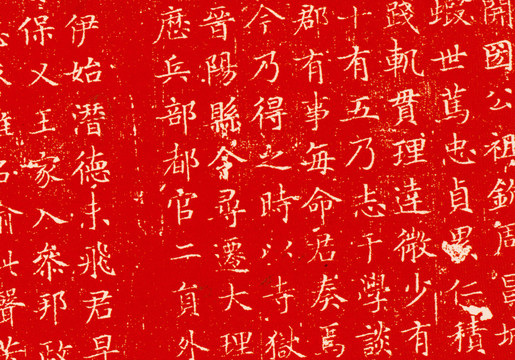 開國公祖周
世篤忠貞累仁積
踐軌貫理達微少有
十有五乃志于學談
郡有事每命君奏焉
今乃得之時以寺獄
晉陽縣令尋遷大理
歷兵部都官二員外
伊始潛德未飛君早
保乂王家入參邦政